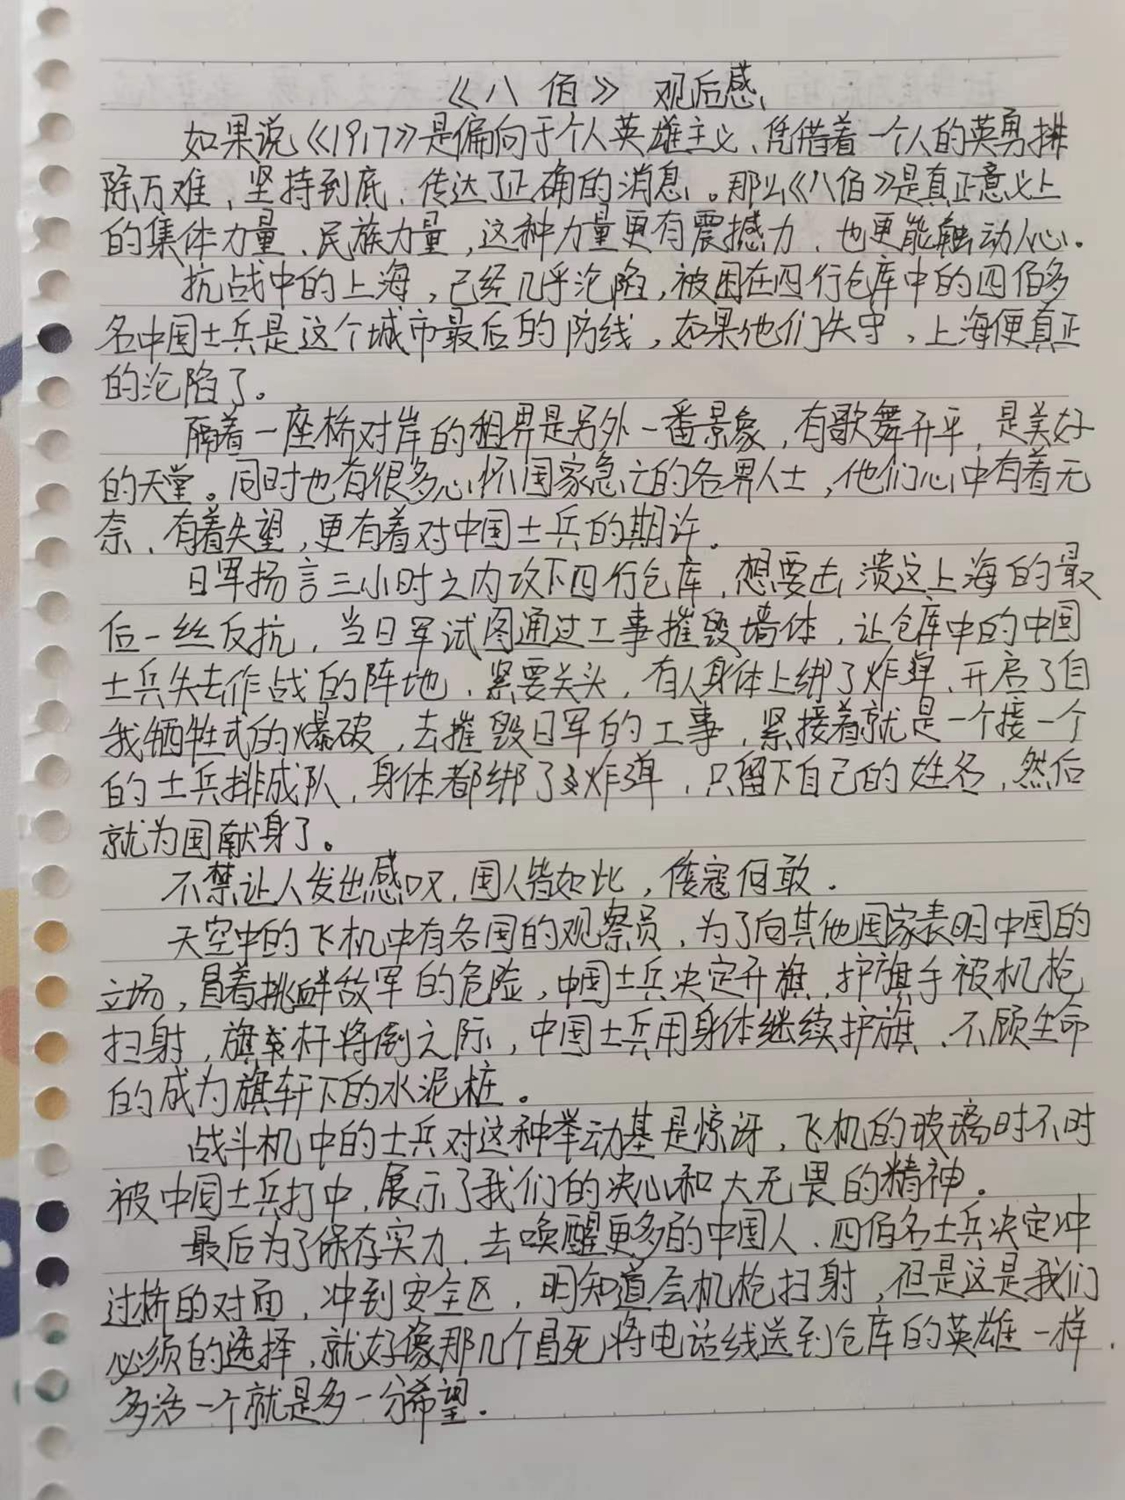 《八佰》观后感
如果说《1917》是偏向于个人英雄主义、凭借着一个人的英勇排
除万难，坚持到底，传达了正确的消息。那么《八佰》是真正意义上
的集体力量、民族力量，这种力量更有震撼力、也更能触动人心。
抗战中的上海，已经几乎沦陷，被困在四行仓库中的四佰多
名中国士兵是这个城市最后的防线，如果他们失守，上海便真正
的沦陷了。
隔着一座桥对岸的租界是另外一番景象，有歌舞升平，是美好
的天堂。同时也有很多心怀国家急亡的各界人士，他们心中有着无
奈、有着失望，更有着对中国士兵的期许。
日军扬言三小时之内攻下四行仓库，想要击溃这上海的最
后一丝反抗，当日军试图通过工事摧毁墙体，让仓库中的中国
士兵失去作战的阵地、紧要关头，有人身体上绑了炸弹、开启了自
我牺牲式的爆破，去摧毁日军的工事，紧接着就是一个接一个
的士兵排成队，身体都绑了炸弹，只留下自己的姓名，然后
就为国献身了。
不禁让人发出感叹，国人皆如此，倭寇何敢。
天空中的飞机中有各国的观察员，为了向其他国家表明中国的
立场，冒着挑衅敌军的危险，中国士兵决定升旗，护旗手被机枪
扫射，旗杆将倒之际，中国士兵用身体继续护旗、不顾生命
的成为旗轩下的水泥桩。
战斗机中的士兵对这种举动甚是惊讶，飞机的玻璃时不时
被中国士兵打中，展示了我们的决心和大无畏的精神。
最后为了保存实力、去唤醒更多的中国人、四佰名士兵决定冲
过桥的对面，冲到安全区，明知道会机枪扫射，但是这是我们
必须的选择，就好像那几个冒死将电话线送到仓库的英雄一样，
多活一个就是多一分希望。